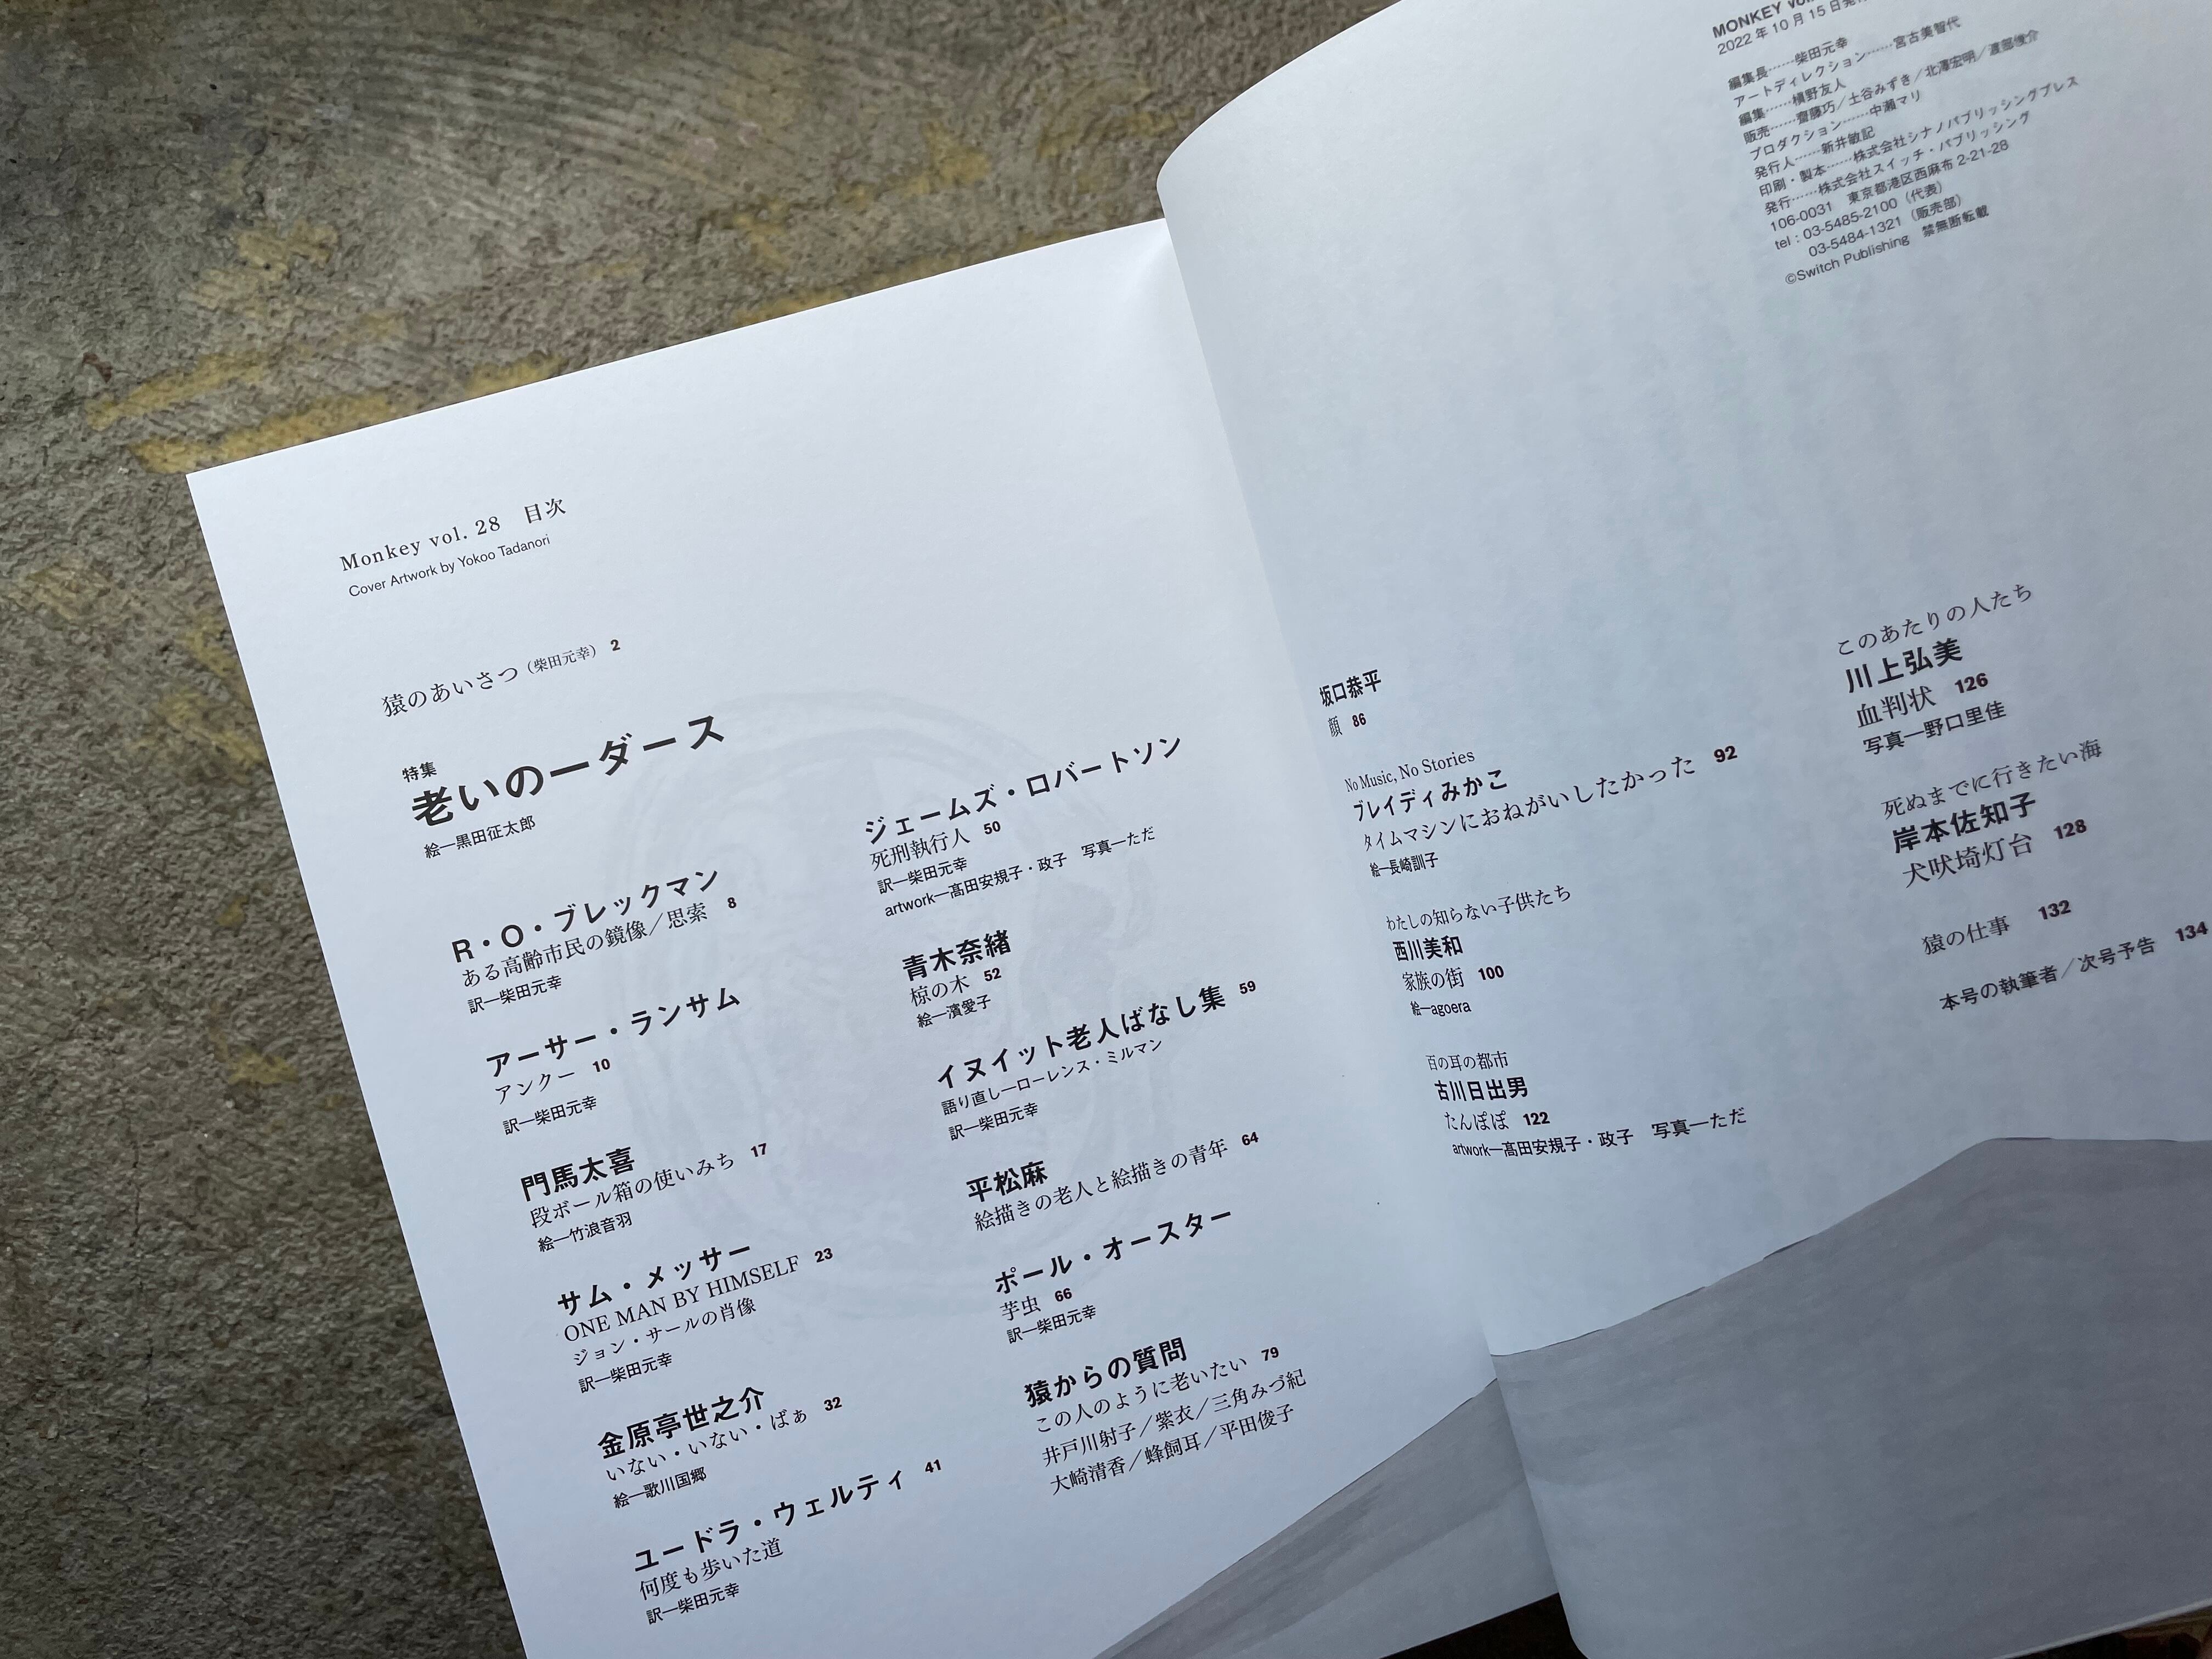 Monkey vol. 28 目次
Cover Artwork by Yokoo Tadanori
猿のあいさつ（柴田元幸） 2
特集
老いの一ダース
絵―黒田征太郎
R・O・ブレックマン
ある高齢市民の鏡像／思索 8
訳―柴田元幸
アーサー・ランサム
アンクー 10
訳―柴田元幸
門馬太喜
段ボール箱の使いみち 17
絵―竹浪音羽
サム・メッサー
ONE MAN BY HIMSELF 23
ジョン・サールの肖像
訳―柴田元幸
金原亭世之介
いない・いない・ばぁ 32
絵―歌川国郷
ユードラ・ウェルティ 41
何度も歩いた道
訳―柴田元幸
ジェームズ・ロバートソン
死刑執行人 50
訳―柴田元幸
artwork―髙田安規子・政子 写真―ただ
青木奈緒
椋の木 52
絵―濱愛子
イヌイット老人ばなし集 59
語り直し―ローレンス・ミルマン
訳―柴田元幸
平松麻
絵描きの老人と絵描きの青年 64
ポール・オースター
芋虫 66
訳―柴田元幸
猿からの質問
この人のように老いたい 79
井戸川射子／紫衣／三角みづ紀
大崎清香／蜂飼耳／平田俊子
坂口恭平
顔 86
No Music, No Stories
ブレイディみかこ
タイムマシンにおねがいしたかった 92
絵―長崎訓子
わたしの知らない子供たち
西川美和
家族の街 100
絵―agoera
百の耳の都市
古川日出男
たんぽぽ 122
artwork―髙田安規子・政子 写真―ただ
このあたりの人たち
川上弘美
血判状 126
写真―野口里佳
死ぬまでに行きたい海
岸本佐知子
犬吠埼灯台 128
猿の仕事 132
本号の執筆者／次号予告 134
MONKEY vol.
2022年10月15日
編集長……柴田元幸
アートディレクション……宮古美智代
編集……槇野友人
販売……齋藤巧／土谷みずき／北澤宏明／渡部慎介
プロダクション……中瀬マリ
発行人……新井敏記
印刷・製本……株式会社シナノパブリッシングプレス
発行……株式会社スイッチ・パブリッシング
106-0031 東京都港区西麻布 2-21-28
tel：03-5485-2100（代表）
03-5484-1321（販売部）
©Switch Publishing 禁無断転載